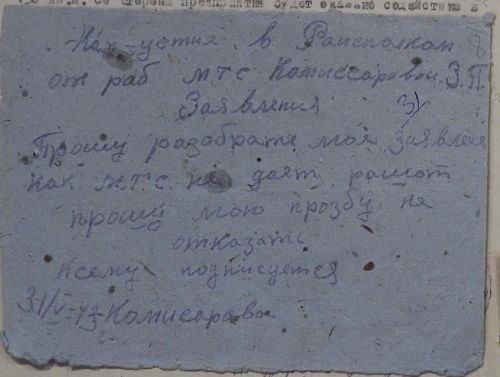 кв.м. со стороны предприятия будет оказано содействие в
в Раисполком 8
от раб МТС Комиссаровой З.П.
Заявления
31
Прошу разобрать моя Заявления
как МТС не дает рашот
прошу мою прозбу не
отказать
Ксему подписуется
31/V-43 Комисарова